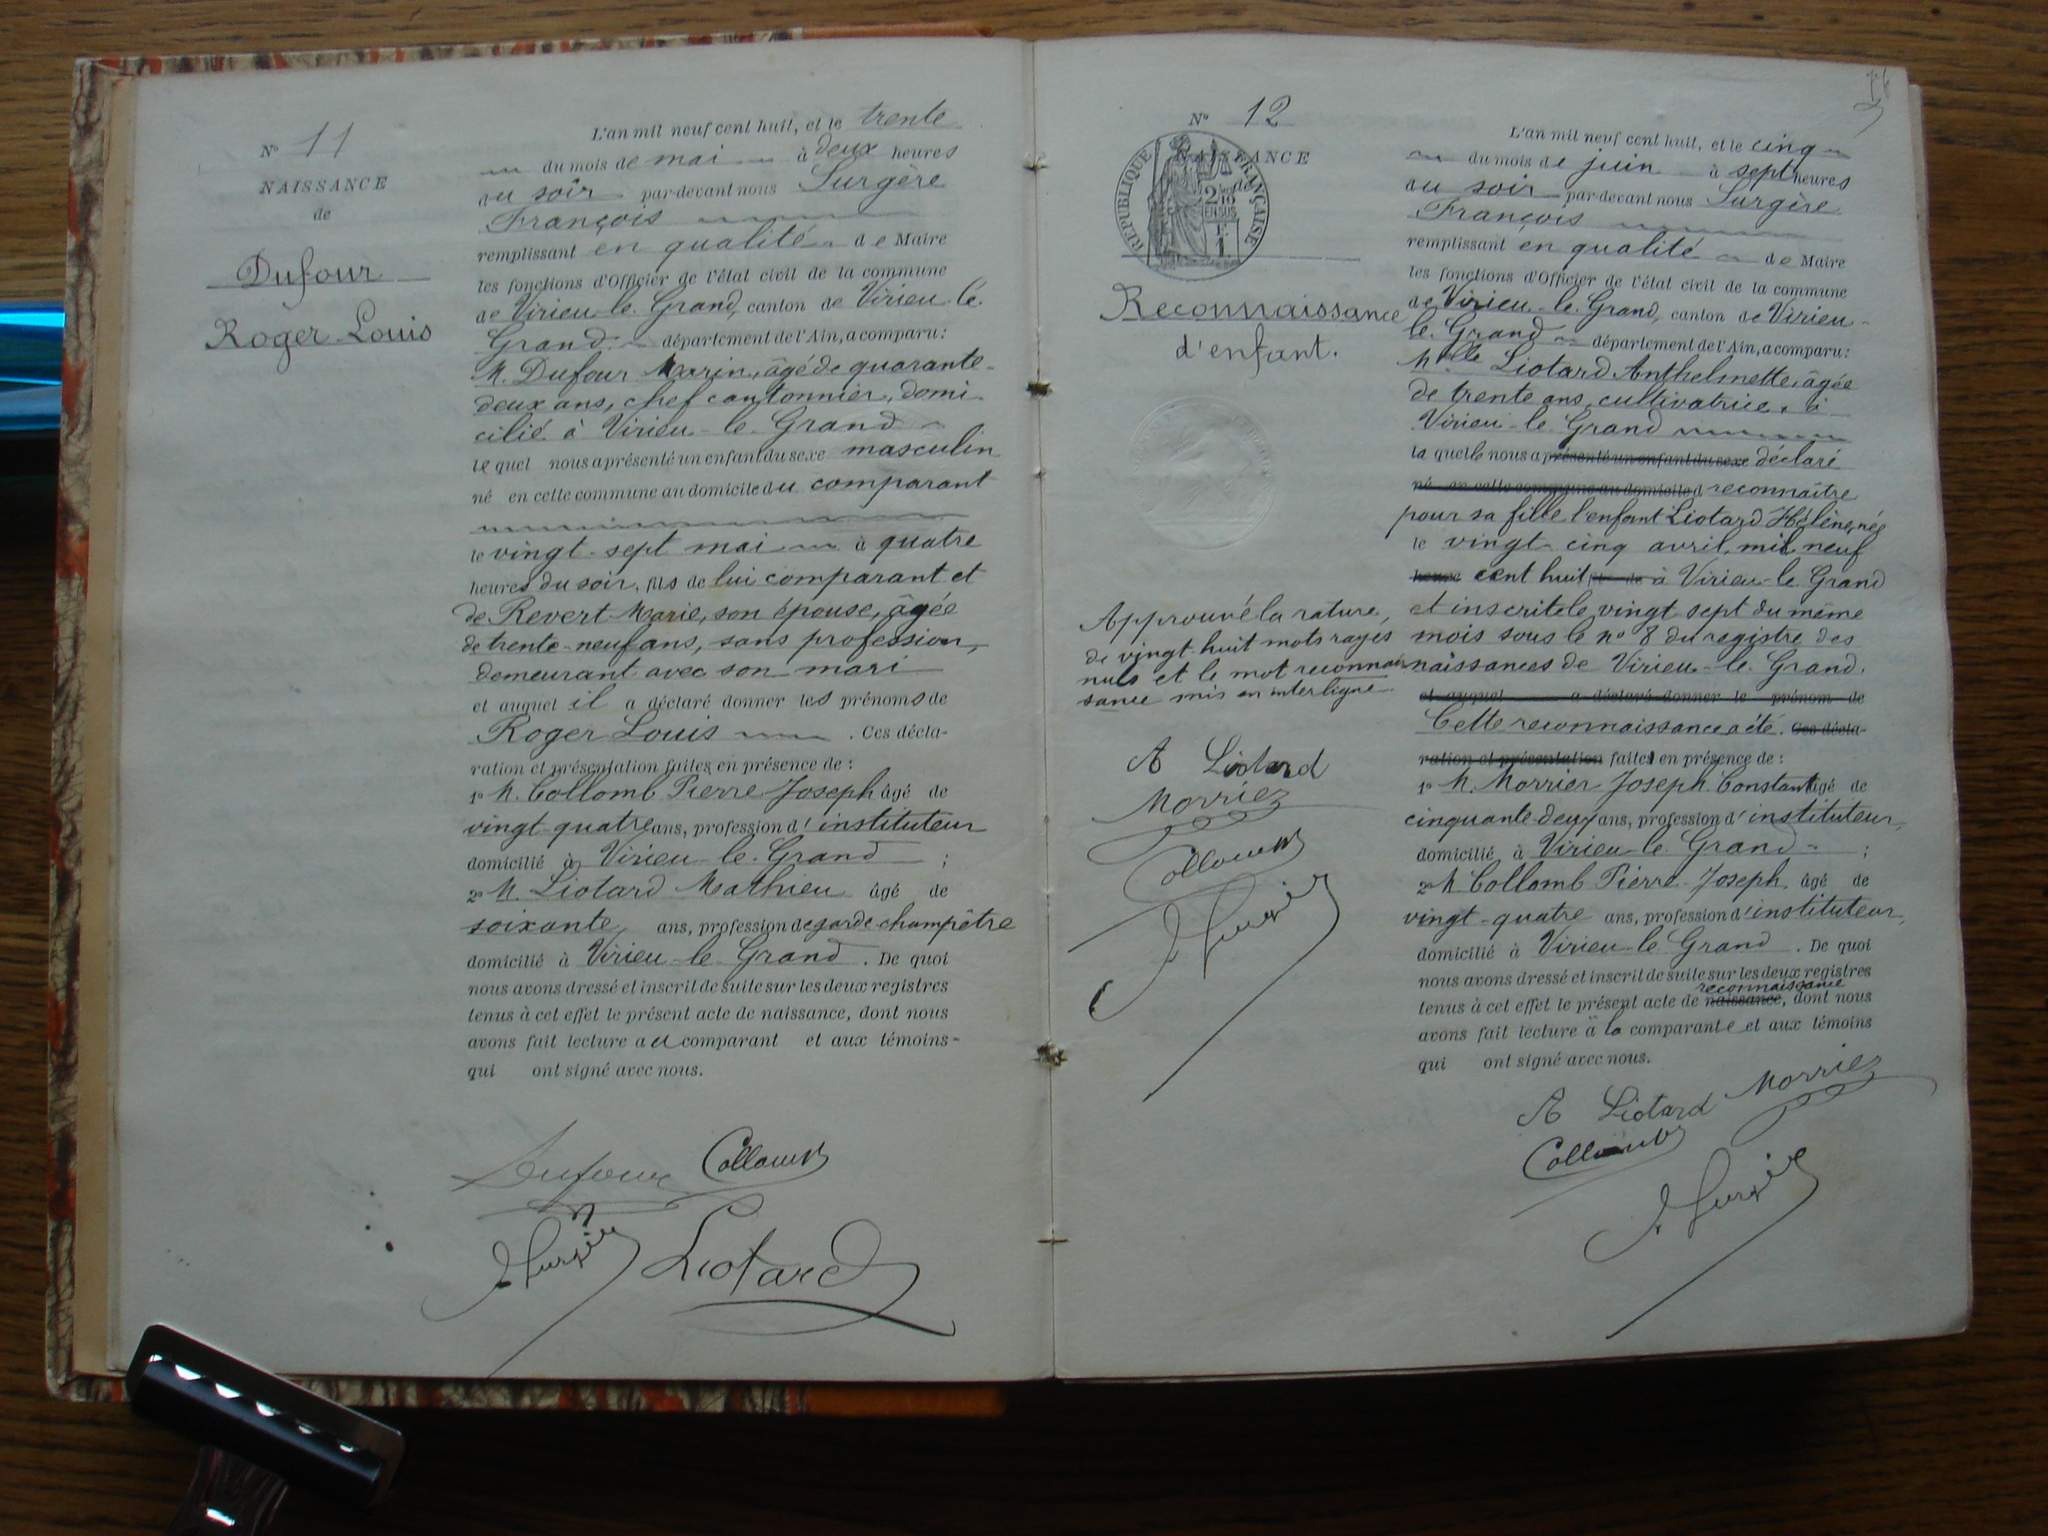 N° 11
NAISSANCE
de
Dufour
Roger Louis
L'an mil neuf cent huit, et le trente
du mois de mai à deux heures
du soir par-devant nous Surgère
François
remplissant en qualité de Maire
les fonctions d'Officier de l'état civil de la commune
de Virieu-le-Grand, canton de Virieu-le-
Grand département de l'Ain, a comparu:
M. Dufour Marin, âgé de quarante-
deux ans, chef cantonnier, domi-
cilié à Virieu-le-Grand
le quel nous a présenté un enfant du sexe masculin
né en cette commune au domicile du comparant
le vingt-sept mai à quatre
heures du soir, fils de lui comparant et
de Revert Marie, son épouse, âgée
de trente-neuf ans, sans profession,
demeurant avec son mari
et auquel il a déclaré donner les prénoms de
Roger Louis . Ces décla-
ration et présentation faites en présence de :
1° M. Collomb Pierre Joseph âgé de
vingt-quatre ans, profession d'instituteur
domicilié à Virieu-le-Grand ;
2° M. Liotard Mathieu âgé de
soixante ans, profession de garde-champêtre
domicilié à Virieu-le-Grand . De quoi
nous avons dressé et inscrit de suite sur les deux registres
tenus à cet effet le présent acte de naissance, dont nous
avons fait lecture au comparant et aux témoins
qui ont signé avec nous.
Dufour Collomb
F Surgère Liotard
N° 12
RÉPUBLIQUE FRANÇAISE
2/10
EN SUS
1
Reconnaissance
d'enfant.
Approuvé la rature,
de vingt-huit mots rayés
nuls et le mot reconnais-
sance mis en interligne.
A Liotard
Morrier
Collomb
F Surgère
L'an mil neuf cent huit, et le cinq
du mois de juin à sept heures
du soir par-devant nous Surgère
François
remplissant en qualité de Maire
les fonctions d'Officier de l'état civil de la commune
de Virieu-le-Grand, canton de Virieu-
le-Grand département de l'Ain, a comparu:
Melle Liotard Anthelmette, âgée
de trente ans, cultivatrice, à
Virieu-le-Grand
la quelle nous a présenté un enfant du sexe déclaré
né en cette commune au domicile d reconnaître
pour sa fille l'enfant Liotard Hélène, née
le vingt-cinq avril mil neuf
heures cent huit à Virieu-le-Grand
et inscrite le vingt sept du même
mois sous le n° 8 du registre des
naissances de Virieu-le-Grand.
et auquel a déclaré donner le prénom de
Cette reconnaissance a été . Ces décla-
ration et présentation faite en présence de :
1° M. Morrier Joseph Constant âgé de
cinquante-deux ans, profession d'instituteur,
domicilié à Virieu-le-Grand ;
2° M. Collomb Pierre Joseph âgé de
vingt-quatre ans, profession d'instituteur,
domicilié à Virieu-le-Grand . De quoi
nous avons dressé et inscrit de suite sur les deux registres
reconnaissance
tenus à cet effet le présent acte de naissance, dont nous
avons fait lecture à la comparante et aux témoins
qui ont signé avec nous.
A Liotard Morrier
Collomb
F Surgère